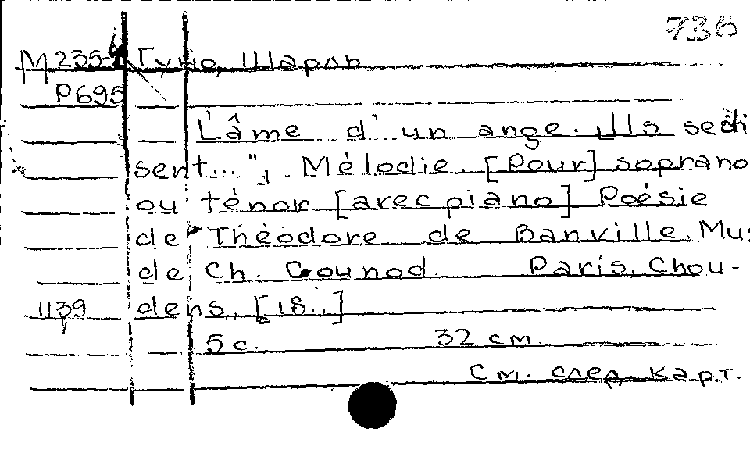 736
М 235-4 Гуно, Шарль
Р695
L'âme d'un ange. „Ils se di
sent..."„. Mélodie. [Pour] soprano
ou ténor [avec piano] Poésie
de Théodore de Banville. Mus
de Ch. Gounod. Paris, Chou-
1139 dens, [18..]
5 с. 32 см.
См. след. карт.